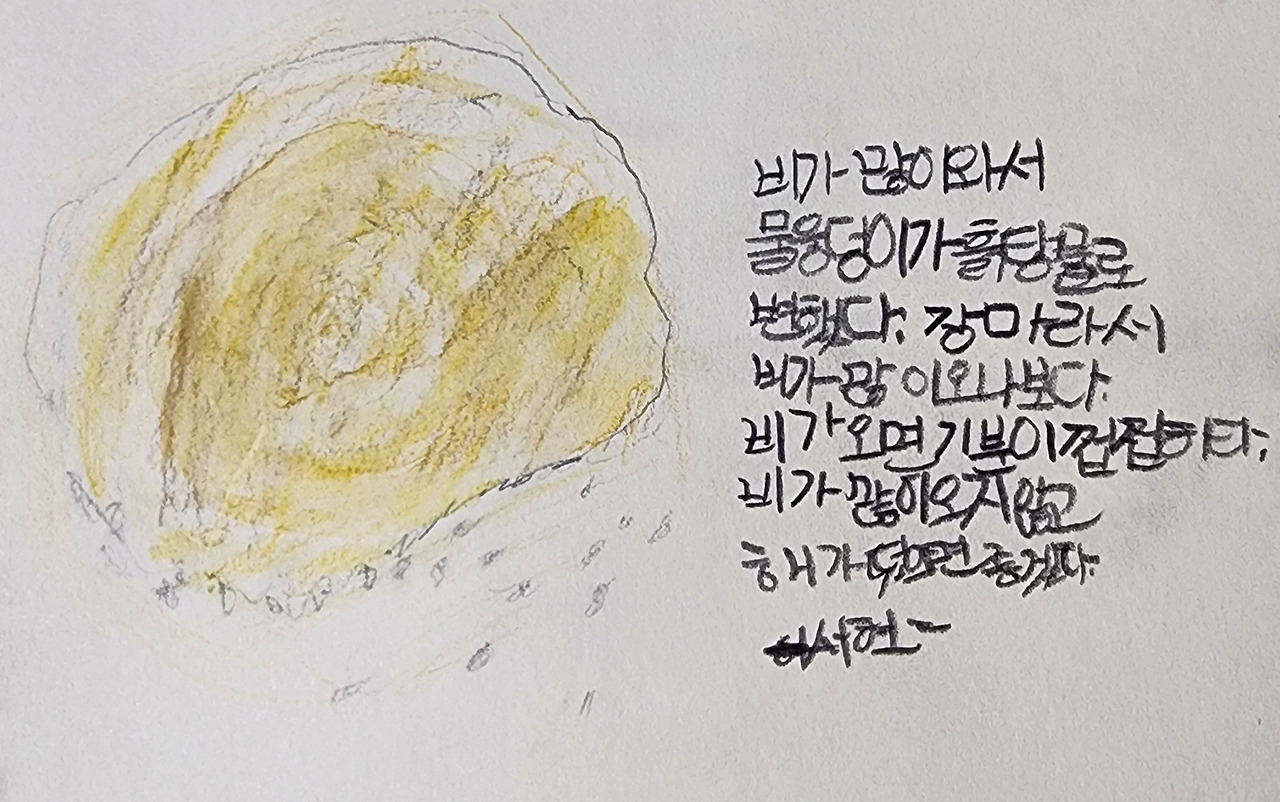 비가 많이와서
물웅덩이가 흙탕물로
변했다. 장마라서
비가 많이오나보다.
비가 오면 기분이 껍껍하다.
비가 많이오지 않고
해가 떴으면 좋겠다.
서현-